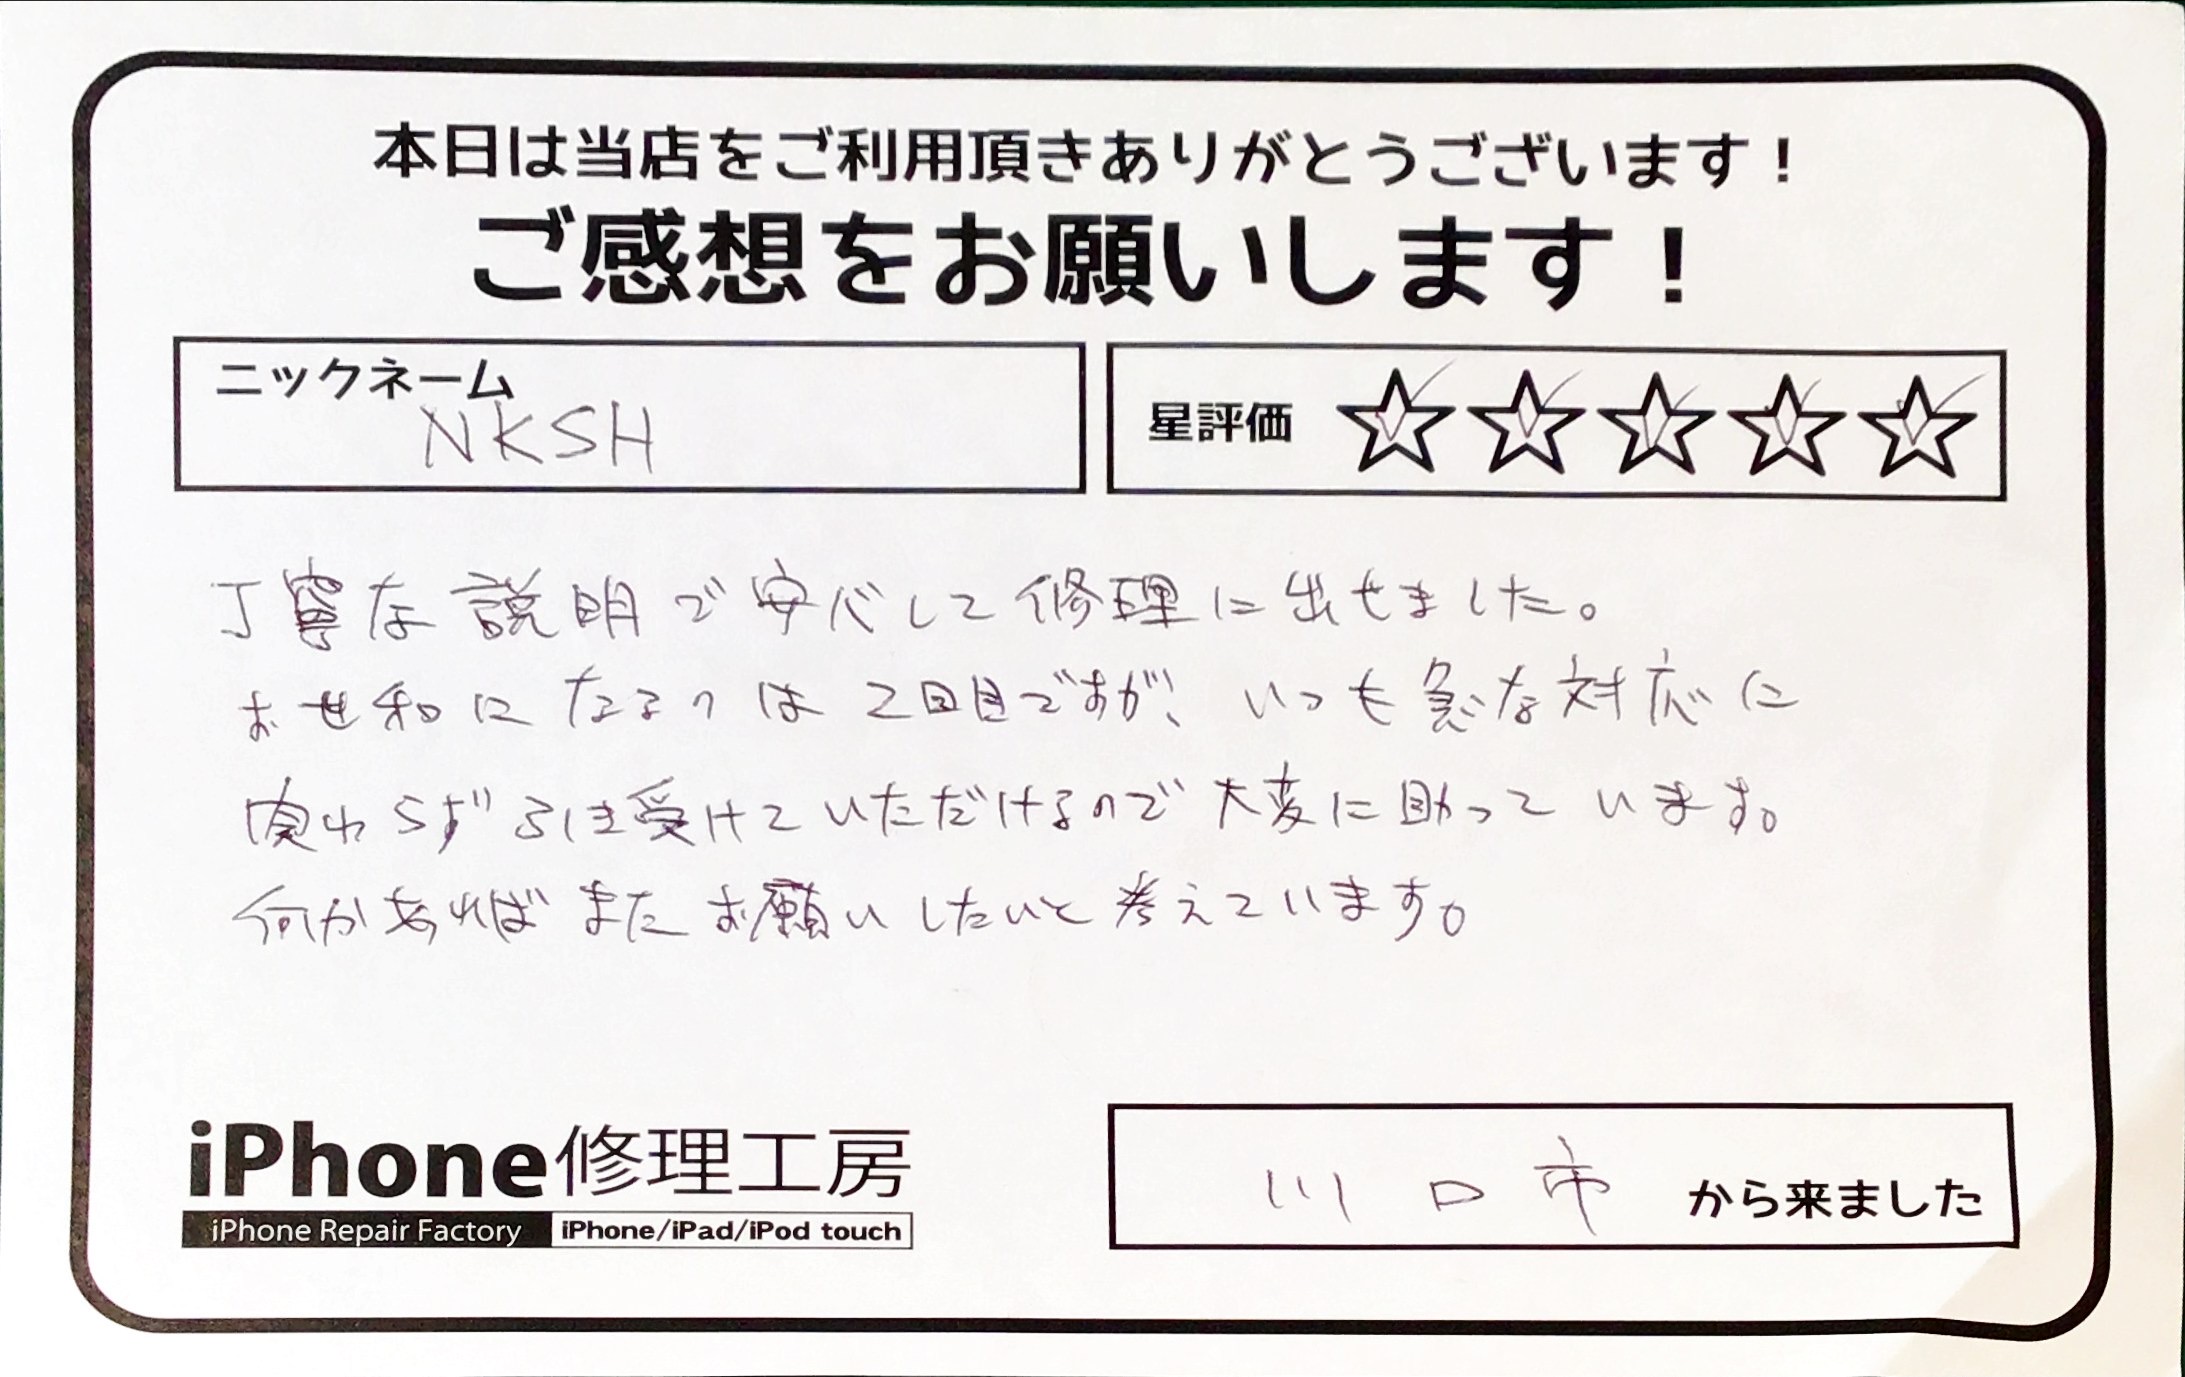 本日は当店をご利用頂きありがとうございます！
ご感想をお願いします！
ニックネーム
NKSH
星評価 ☆☆☆☆☆
丁寧な説明で安心して修理に出せました。
お世和になるのは2回目ですが、いつも急な対応に
関わらず引き受けていただけるので大変に助っています。
何かあればまたお願いしたいと考えています。
iPhone修理工房
iPhone Repair Factory iPhone/iPad/iPod touch
川口市 から来ました